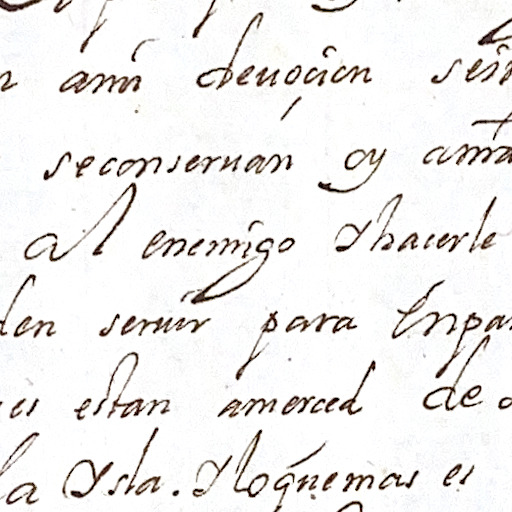 ami deuocion
seconseruan oy
al enemigo Yhacerle
den seruir para
estan amerced de
la Ysla. Yloquemas es